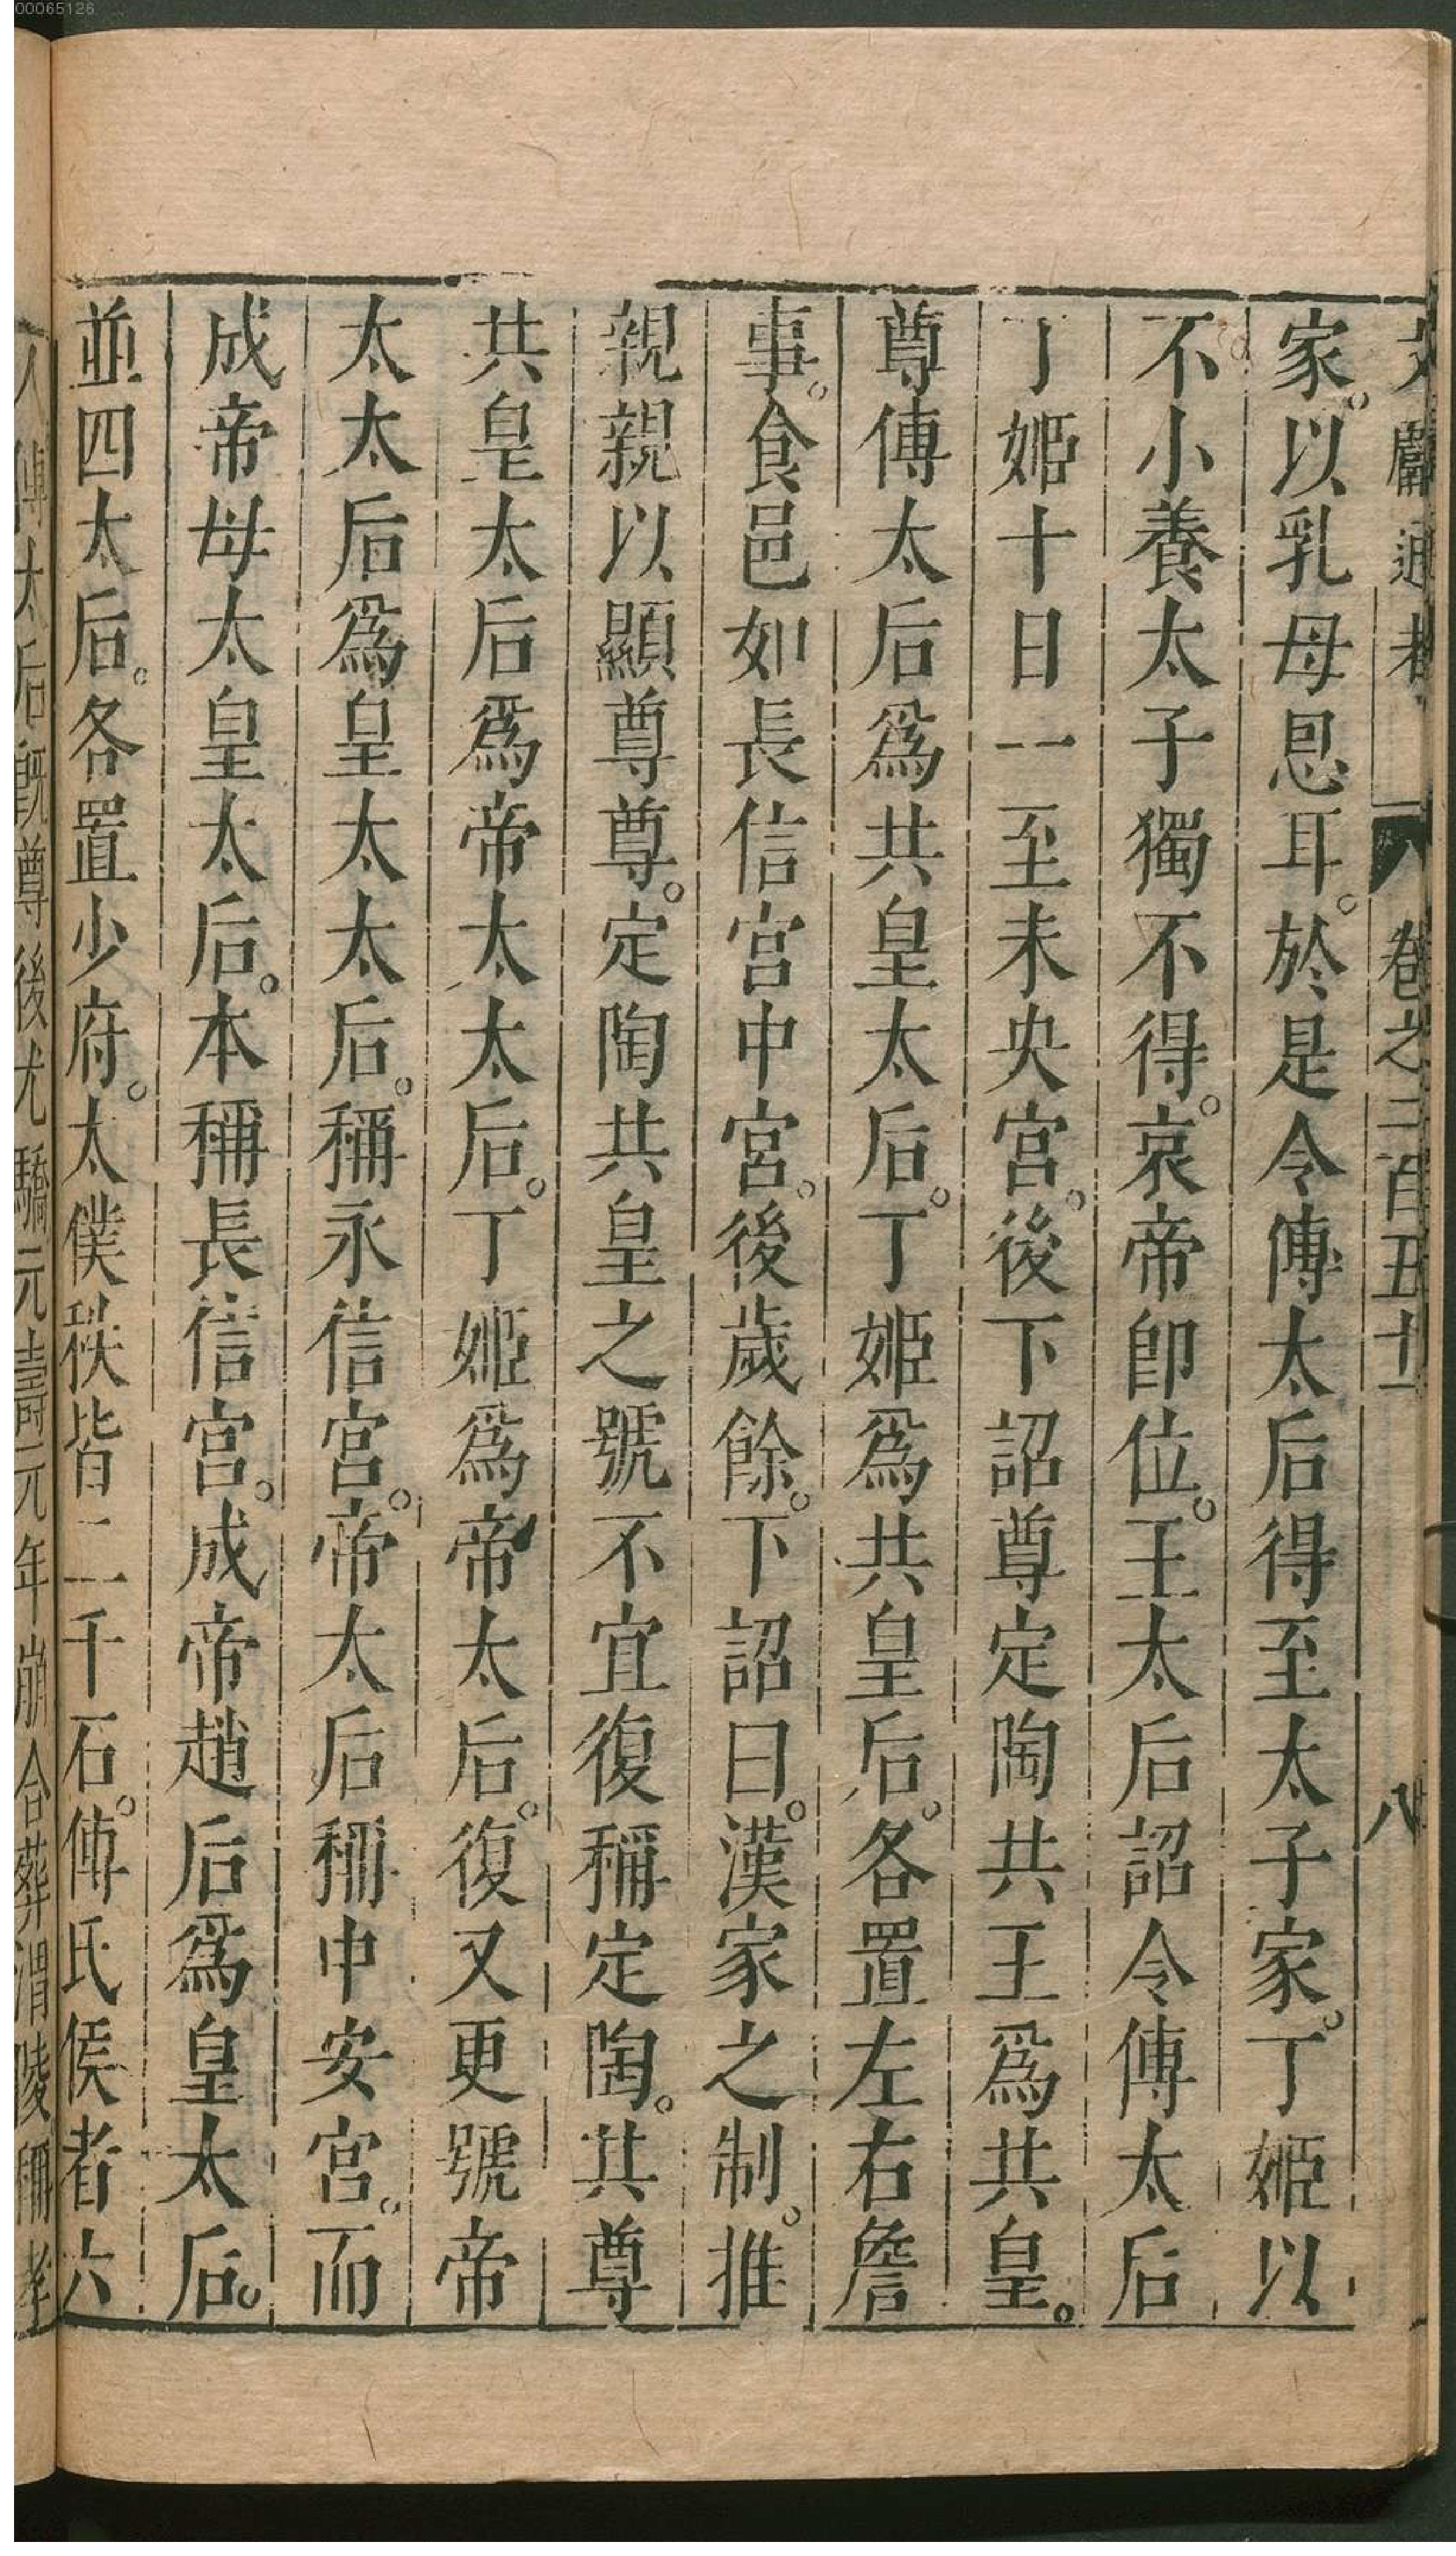 00065126
文獻通考 卷之二百五十一 八
家。以乳母恩耳。於是令傅太后得至太子家。丁姬以
不小養太子獨不得。哀帝卽位。王太后詔令傅太后
丁姬十日一至未央宮。後下詔尊定陶共王爲共皇。
尊傅太后爲共皇太后。丁姬爲共皇后。各置左右詹
事。食邑如長信宮中宮。後歲餘。下詔曰。漢家之制。推
親親以顯尊尊。定陶共皇之號不宜復稱定陶。其尊
共皇太后爲帝太太后。丁姬爲帝太后。復又更號帝
太太后爲皇太太后。稱永信宮。帝太后稱中安宮。而
成帝母太皇太后。本稱長信宮。成帝趙后爲皇太后。
並四太后。各置少府。太僕秩皆二千石。傅氏侯者六
人傅太后旣尊後尤驕元壽元年崩合葬渭陵稱孝